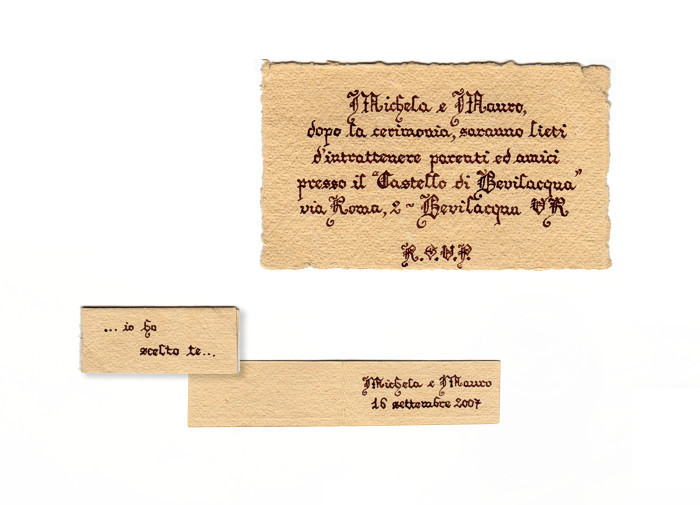 Michela e Mauro,
dopo la cerimonia, saranno lieti
d'intrattenere parenti ed amici
presso il "Castello di Bevilacqua"
via Roma, 2 ~ Bevilacqua VR
R.S.V.P.
... io ho
scelto te...
Michela e Mauro
16 settembre 2007